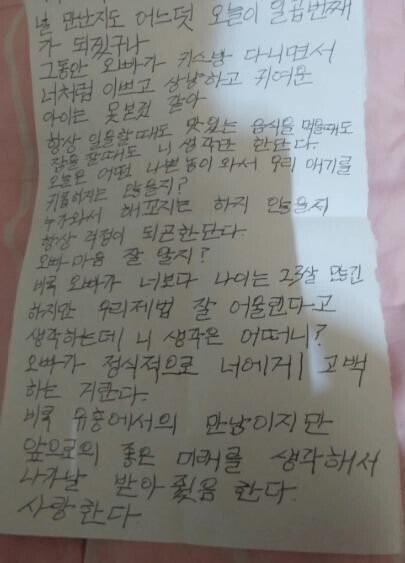 널 만난지도 어느덧 오늘이 일곱번째
가 되졌구나
그동안 오빠가 키스방 다니면서
너처럼 이쁘고 상냥하고 귀여운
아이는 못본것 같아
항상 일을할때도 맛있는 음식을 먹을때도
잠을 잘때도 니 생각만 한단다.
오늘은 어떤 나쁜놈이 와서 우리 애기를
괴롭히지는 않을지?
누가와서 해꼬지는 하지 않을지
항상 걱정이 되곤한단다.
오빠마음 잘 알지?
비록 오빠가 너보다 나이는 23살 많긴
하지만 우리제법 잘 어울린다고
생각하는데 니 생각은 어떠니?
오빠가 정식적으로 너에게 고백
하는 거란다.
비록 유흥에서의 만남이지만
앞으로의 좋은 미래를 생각해서
나가날 받아줬음 한다.
사랑한다